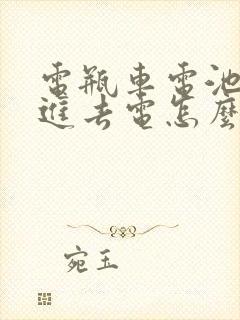 電瓶車電池
進去電怎麼
宛玉